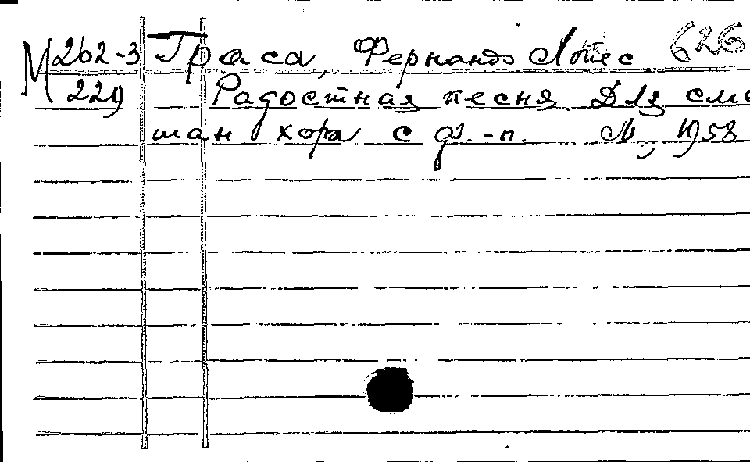 М 262-3 Граса, Фернандо Лопес 626
229 Радостная песня Для сме
шан хора с ф.-п. М, 1958